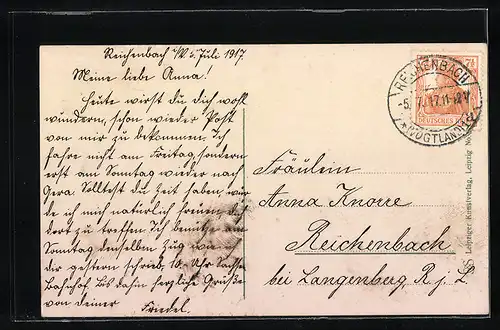 Reichenbach i/V. 5. Juli 1917.
Meine liebe Anna!
Heute wirst du dich wohl
wundern, schon wieder Post
von mir zu bekommen. Ich
fahre nicht am Freitag, sondern
erst am Sonntag wieder nach
Gera. Solltest du Zeit haben, wür-
de ich mich natürlich freuen dich
dort zu treffen. Ich benütze am
Sonntag denselben Zug wie
dir gestern schrieb, 10 Uhr
Bahnhof. Bis dahin herzliche Grüße
von deiner Friedel.
REICHENBACH
-5. 7. 17. 11-12 V
* (VOGTLAND)
7½
DEUTSCHES REICH
Fräulein
Anna Knorre
Reichenbach
bei Langenberg R. j. L.
Leipziger Kunstverlag, Leipzig